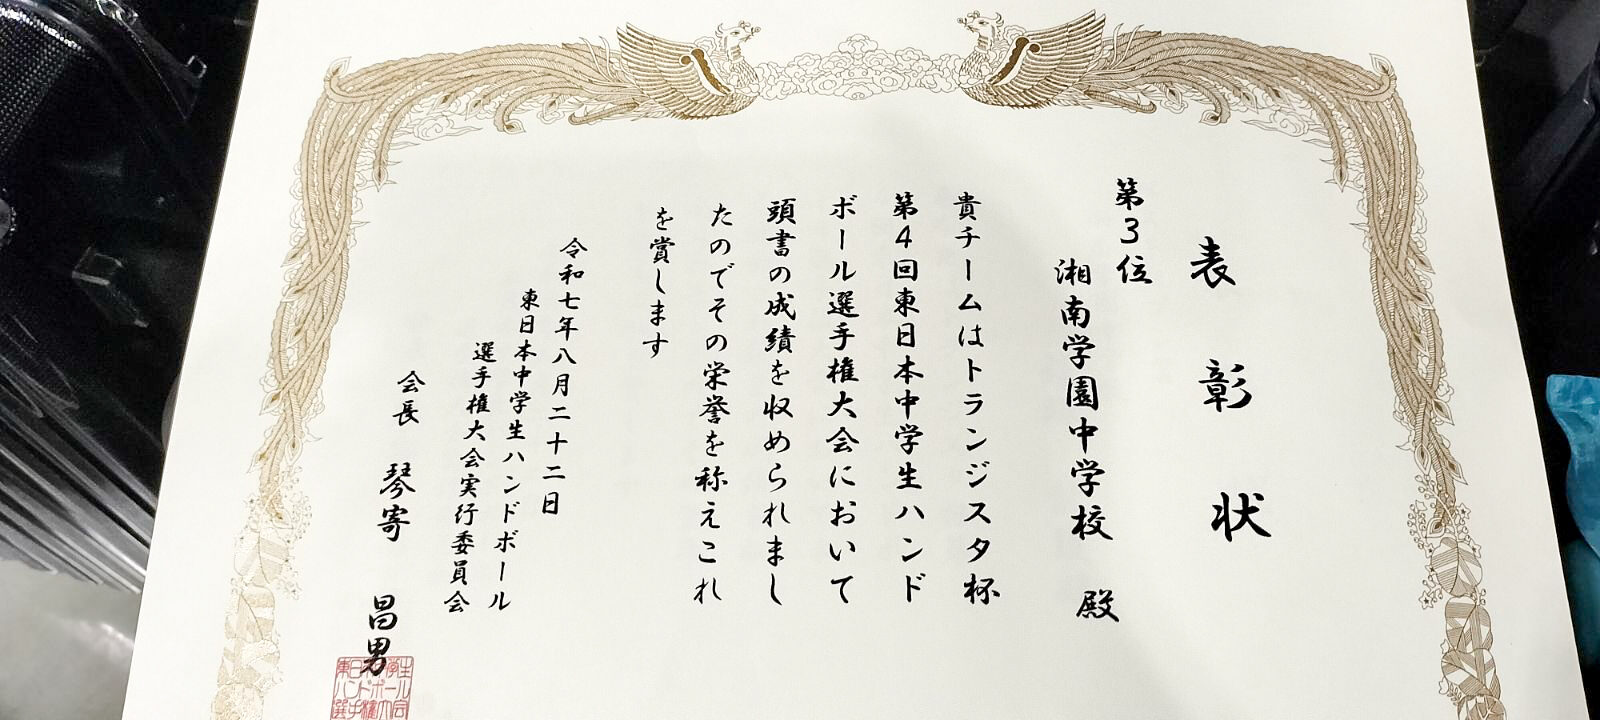 表彰状
第3位
湘南学園中学校 殿
貴チームはトランジスタ杯
第4回東日本中学生ハンド
ボール選手権大会において
頭書の成績を収められまし
たのでその栄誉を称えこれ
を賞します
令和七年八月二十二日
東日本中学生ハンドボール
選手権大会実行委員会
会長 琴寄 昌男